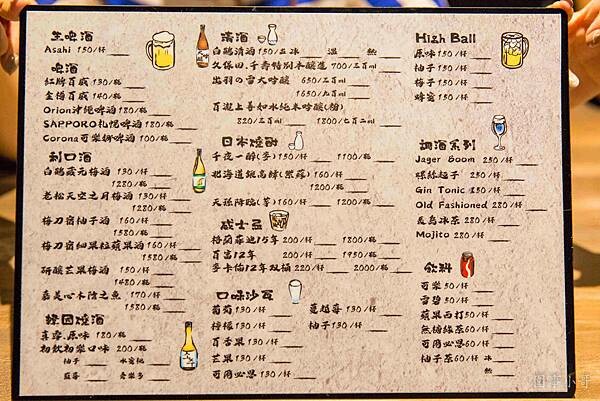 生啤酒
Asahi 150/杯
啤酒
紅牌百威 130/瓶
金牌百威 140/瓶
Orion沖繩啤酒 180/瓶
SAPPORO札幌啤酒 180/瓶
Corona可樂娜啤酒 100/瓶
利口酒
白鶴露元梅酒 130/杯
1280/瓶
老松天空之月梅酒 130/杯
1280/瓶
梅乃宿柚子酒 160/杯
1580/瓶
梅乃宿細果粒蘋果酒 160/杯
1580/瓶
研釀芒果梅酒 150/杯
1480/瓶
嘉美心木陰之魚 170/杯
1580/瓶
韓國燒酒
真露.原味 180/瓶
初飲初樂口味 200/瓶
柚子 水蜜桃
藍莓 養樂多
清酒
白鶴清酒 150/壺 冰 溫 熱
久保田.千壽特別本釀造 700/三百ml
出羽の雪大吟釀 650/三百ml
1650/九百ml
百瀧上善如水純米吟釀
820/三百ml 1800/七百二ml
日本燒酎
千夜一醇(麥) 150/杯 1100/瓶
160/杯
1200/瓶
160/杯 1200/瓶
威士忌
格蘭菲迪15年 200/杯 1800/瓶
百富12年 200/杯 1950/瓶
麥卡倫12年双桶 220/杯 2000/瓶
口味沙瓦
葡萄 130/杯 蔓越莓 130/杯
檸檬 130/杯 柚子 130/杯
百香果 130/杯
芒果 130/杯
可爾必思 130/杯
High Ball
原味 150/杯
柚子 150/杯
梅子 150/杯
蜂蜜 150/杯
調酒系列
Jager Boom 250/杯
螺絲起子 250/杯
Gin Tonic 250/杯
Old Fashioned 280/杯
長島冰茶 280/杯
Mojito 280/杯
飲料
可樂 50/杯
雪碧 50/杯
蘋果西打 50/杯
無糖綠茶 60/杯
可爾必思 60/杯
柚子茶 60/杯 冰
熱